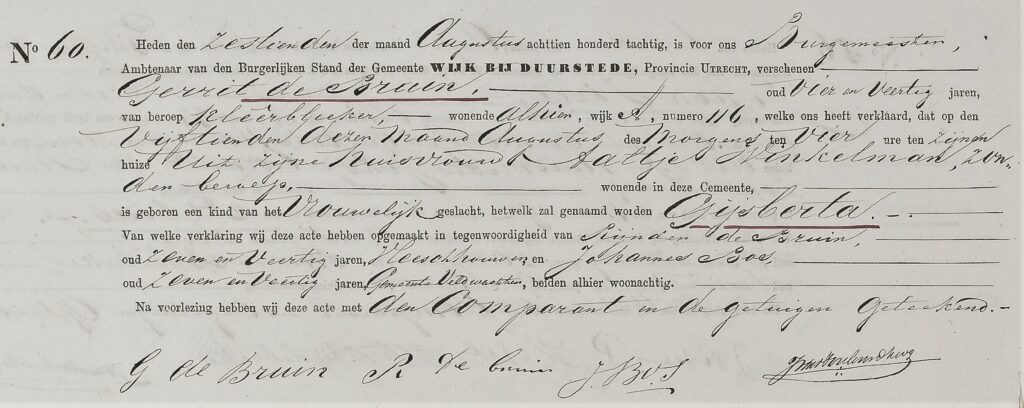 No 60. Heden den zestienden der maand Augustus achttien honderd tachtig, is voor ons Burgemeester,
Ambtenaar van den Burgerlijken Stand der Gemeente WIJK BIJ DUURSTEDE, Provincie UTRECHT, verschenen
Gerrit de Bruin, oud Vier en Veertig jaren,
van beroep kleêrbleeker, wonende alhier, wijk A, numero 116, welke ons heeft verklaard, dat op den
Vijftienden dezer maand Augustus des Morgens ten Vier ure ten zijnen
huize Uit zijne huisvrouw Aaltje Winkelman, zon-
der beroep, wonende in deze Gemeente,
is geboren een kind van het Vrouwelijk geslacht, hetwelk zal genaamd worden Gijsberta.
Van welke verklaring wij deze acte hebben opgemaakt in tegenwoordigheid van Reijnder de Bruin,
oud Zeven en Veertig jaren, Vleeschhouwer en Johannes Bos,
oud Zeven en Veertig jaren, Gemeente Veldwachter, beiden alhier woonachtig.
Na voorlezing hebben wij deze acte met den Comparant en de getuigen geteekend.-
G de Bruin R de bruin J. Bos